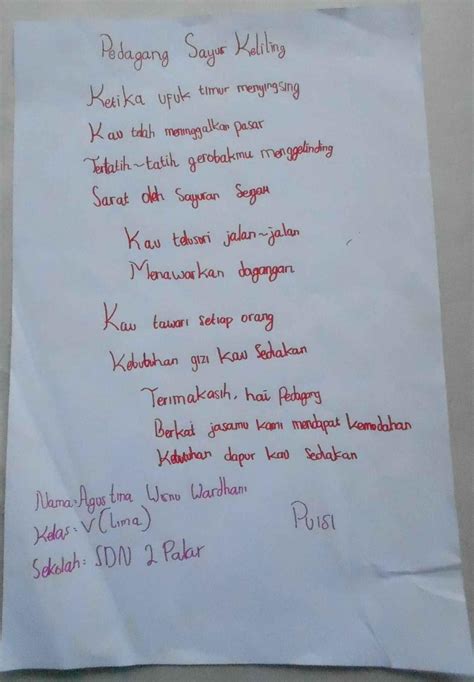 Pedagang Sayur Keliling
Ketika ufuk timur menyingsing
Kau telah meninggalkan pasar
Tertatih~tatih gerobakmu menggelinding
Sarat oleh Sayuran Segar
Kau telusuri jalan~jalan
Menawarkan dagangan
Kau tawari setiap orang
Kebutuhan gizi kau Sediakan
Terimakasih, hai Pedagang
Berkat jasamu kami mendapat kemudahan
Kebutuhan dapur kau Sediakan
Nama: Agustina Wisnu Wardhani
Kelas: V (Lima)
Puisi
Sekolah: SDN 2 Palar